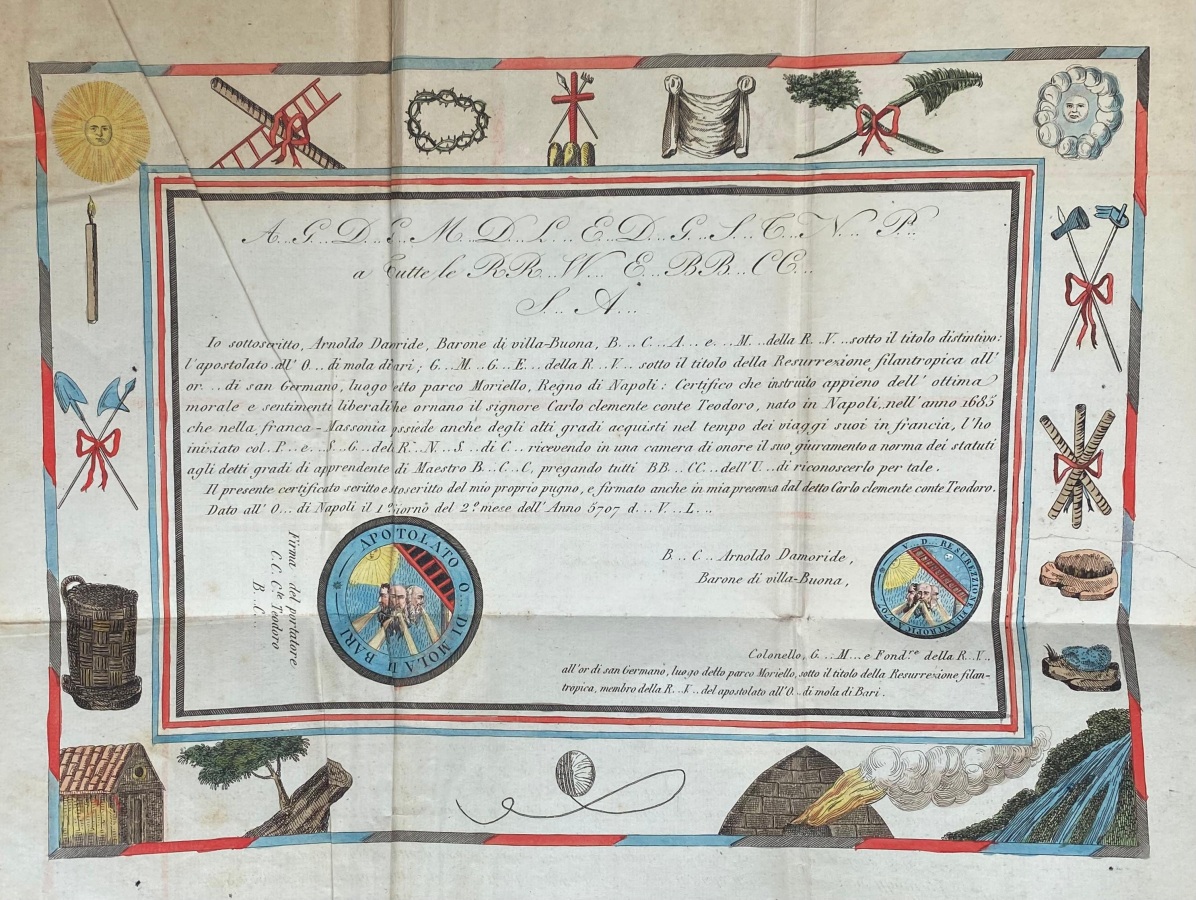 A...G...D...E...M...D...L...E...D...G...S...T...N...P...
a tutte le RR...VV... E...BB...CC...
S... A...
Io sottoscritto, Arnoldo Damride, Barone di villa-Buona, B...C...A...e...M...della R...V...sotto il titolo distintivo:
l'apostolato all'O...di mola di ari; G...M...G...E...della R...V...sotto il titolo della Resurrezione filantropica all'
or...di san Germano, luogo etto parco Moriello, Regno di Napoli: Certifico che instruito appieno dell'ottima
morale e sentimenti liberali he ornano il signore Carlo clemente conte Teodoro, nato in Napoli, nell'anno 1685
che nella franca-Massonia ossiede anche degli alti gradi acquisti nel tempo dei viaggi suoi in francia, l'ho
iniziato col...P...e...S...G...del R...N...S...di C...ricevendo in una camera di onore il suo giuramento a norma dei statuti
agli detti gradi di apprendente di Maestro B...C...C, pregando tutti BB...CC...dell'U...di riconoscerlo per tale.
Il presente certificato scritto e soscritto del mio proprio pugno, e firmato anche in mia presenza dal detto Carlo clemente conte Teodoro.
Dato all'O...di Napoli il 1º giorno del 2º mese dell'Anno 5707 d...V...L...
Firma del portatore
C.C. Cte Teodoro
B...C...
APOTOLATO O... DI MOLA D BARI
B...C...Arnoldo Damoride,
Barone di villa-Buona,
V...D...RESUREZIONE FILANTROPICA 5707
Colonello, G...M...e Fond.re della R...V...
all'or di san Germano, luogo detto parco Moriello, sotto il titolo della Resurrezione filan-
tropica, membro della R...V...del apostolato all'O...di mola di Bari.